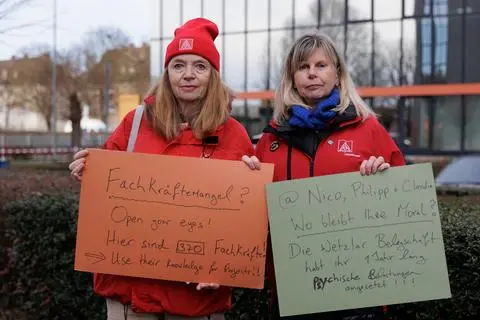 Fachkräftemangel?
Open your eyes!
Hier sind 320 Fachkräfte
→ Use their knowledge for Projects!!
@ Nico, Philipp + Claudia
Wo bleibt Ihre Moral?
Die Wetzlar Belegschaft
habt ihr 1 Jahr lang
psychische Belastungen
ausgesetzt!!!